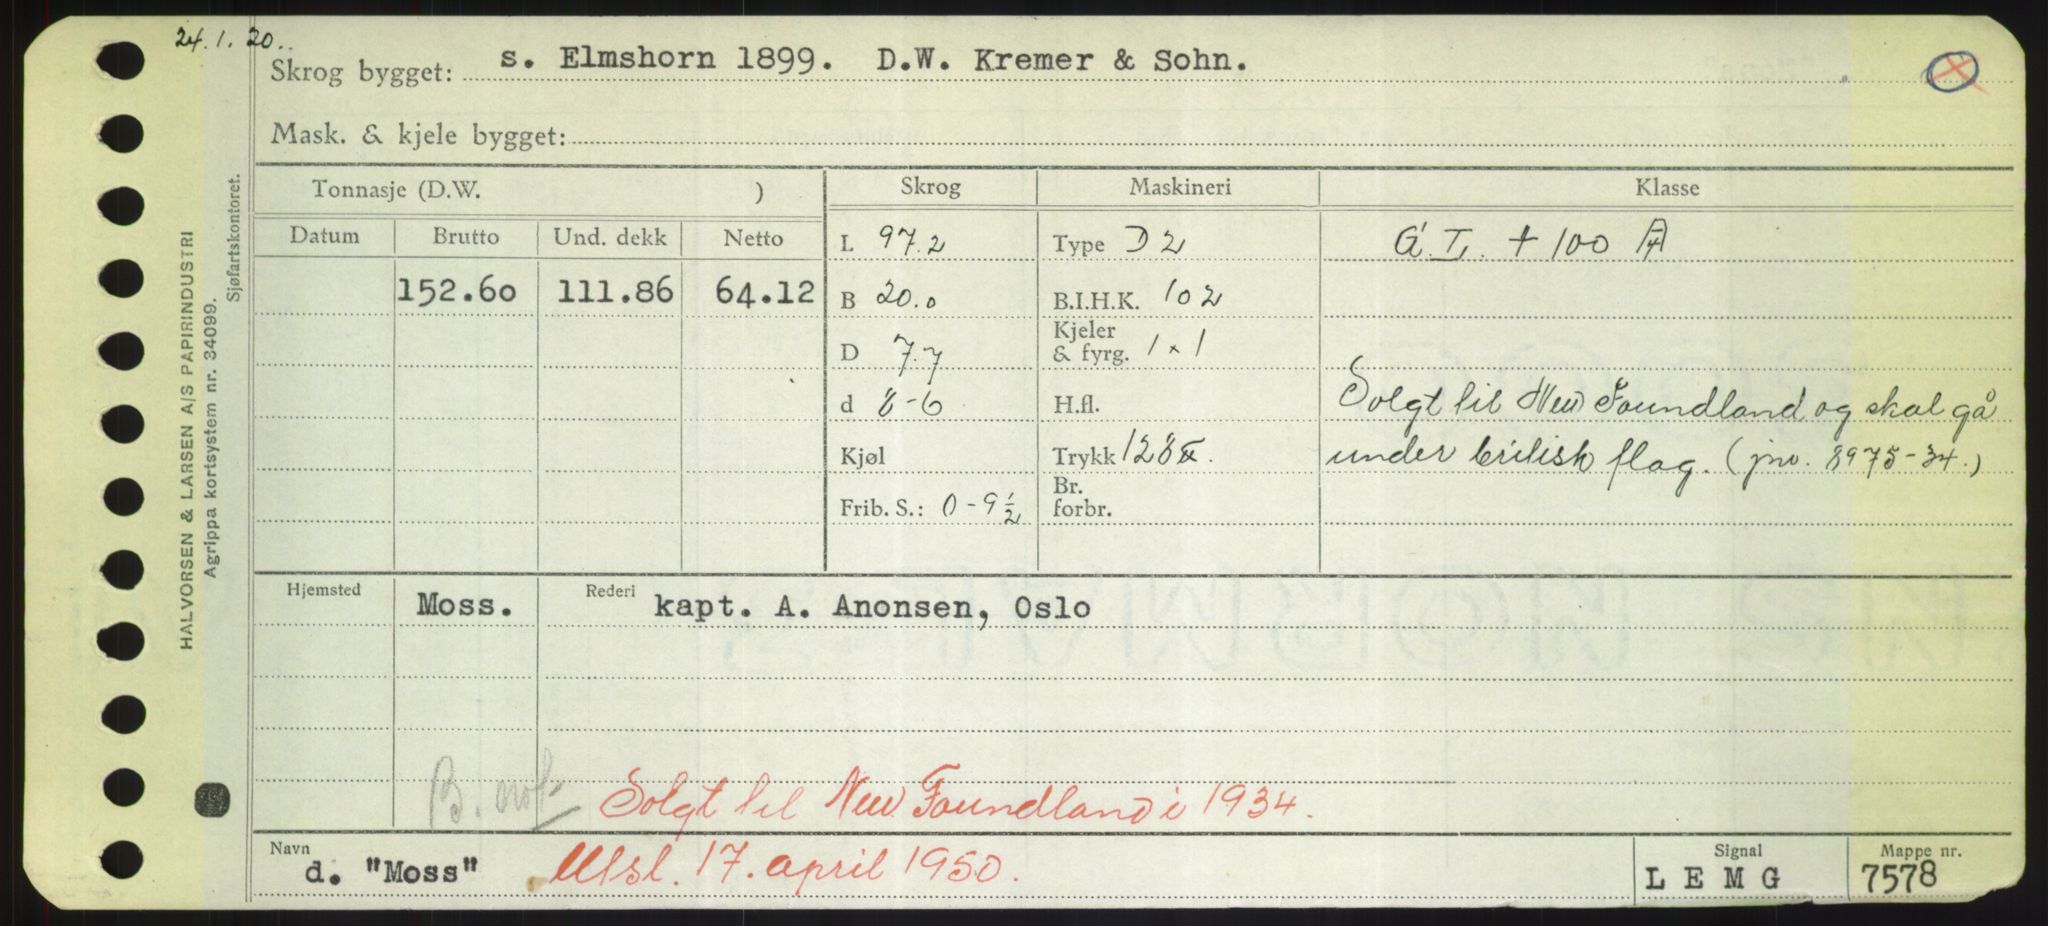 24.1.20..
Skrog bygget: s. Elmshorn 1899. D.W. Kremer & Sohn.
Mask. & kjele bygget:
HALVORSEN & LARSEN A/S PAPIRINDUSTRI
Agrippa kortsystem nr. 34099.
Sjøfartskontoret.
Tonnasje (D.W. )
Datum Brutto Und. dekk Netto
152.60 111.86 64.12
Skrog
L 97.2
B 20.0
D 7.7
d 8-6
Kjøl
Frib. S.: 0-9 1/2
Maskineri
Type D 2
B.I.H.K. 102
Kjeler
& fyrg. 1 x 1
H.fl.
Trykk 128
Br.
forbr.
Klasse
G. I. + 100 A
Solgt til New Foundland og skal gå
under britisk flag. (jnr. 8975-34.)
Hjemsted Moss. Rederi kapt. A. Anonsen, Oslo
B. not.
Solgt til New Foundland i 1934.
Navn d. "Moss" Utsl. 17. april 1950.
Signal LEMG
Mappe nr. 7578